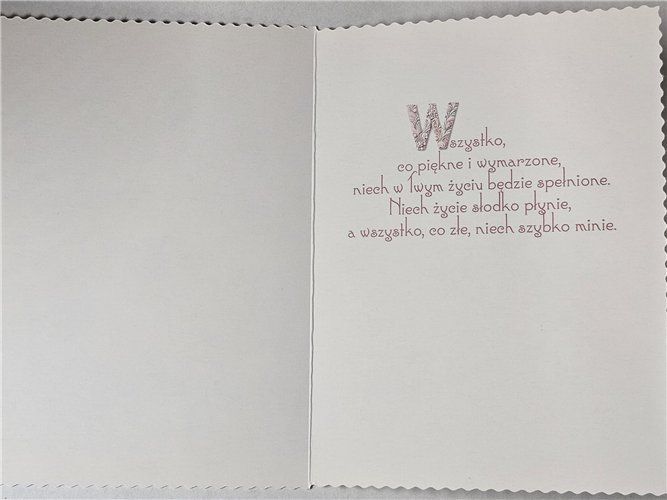 Wszystko,
co piękne i wymarzone,
niech w Twym życiu będzie spełnione.
Niech życie słodko płynie,
a wszystko, co złe, niech szybko minie.